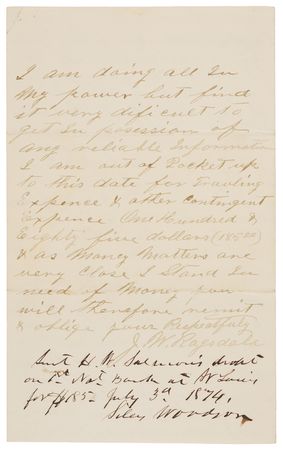 I am doing all In
My power but find
it very dificult to
get In posession of
any reliable Information
I am out of Pocket up
to this date for Traveling
Expence & other Contingent
Expence One Hundred &
Eighty five dollars (185.00)
& as Money Matters are
very Close I Stand In
need of Money you
will therefore remit
& oblige your Respectfuly
J. W. Ragsdale
Sent H. W. Salmon's draft
on 1st Nat Bank at St Louis
for $185- July 3d 1874,
Silas Woodson